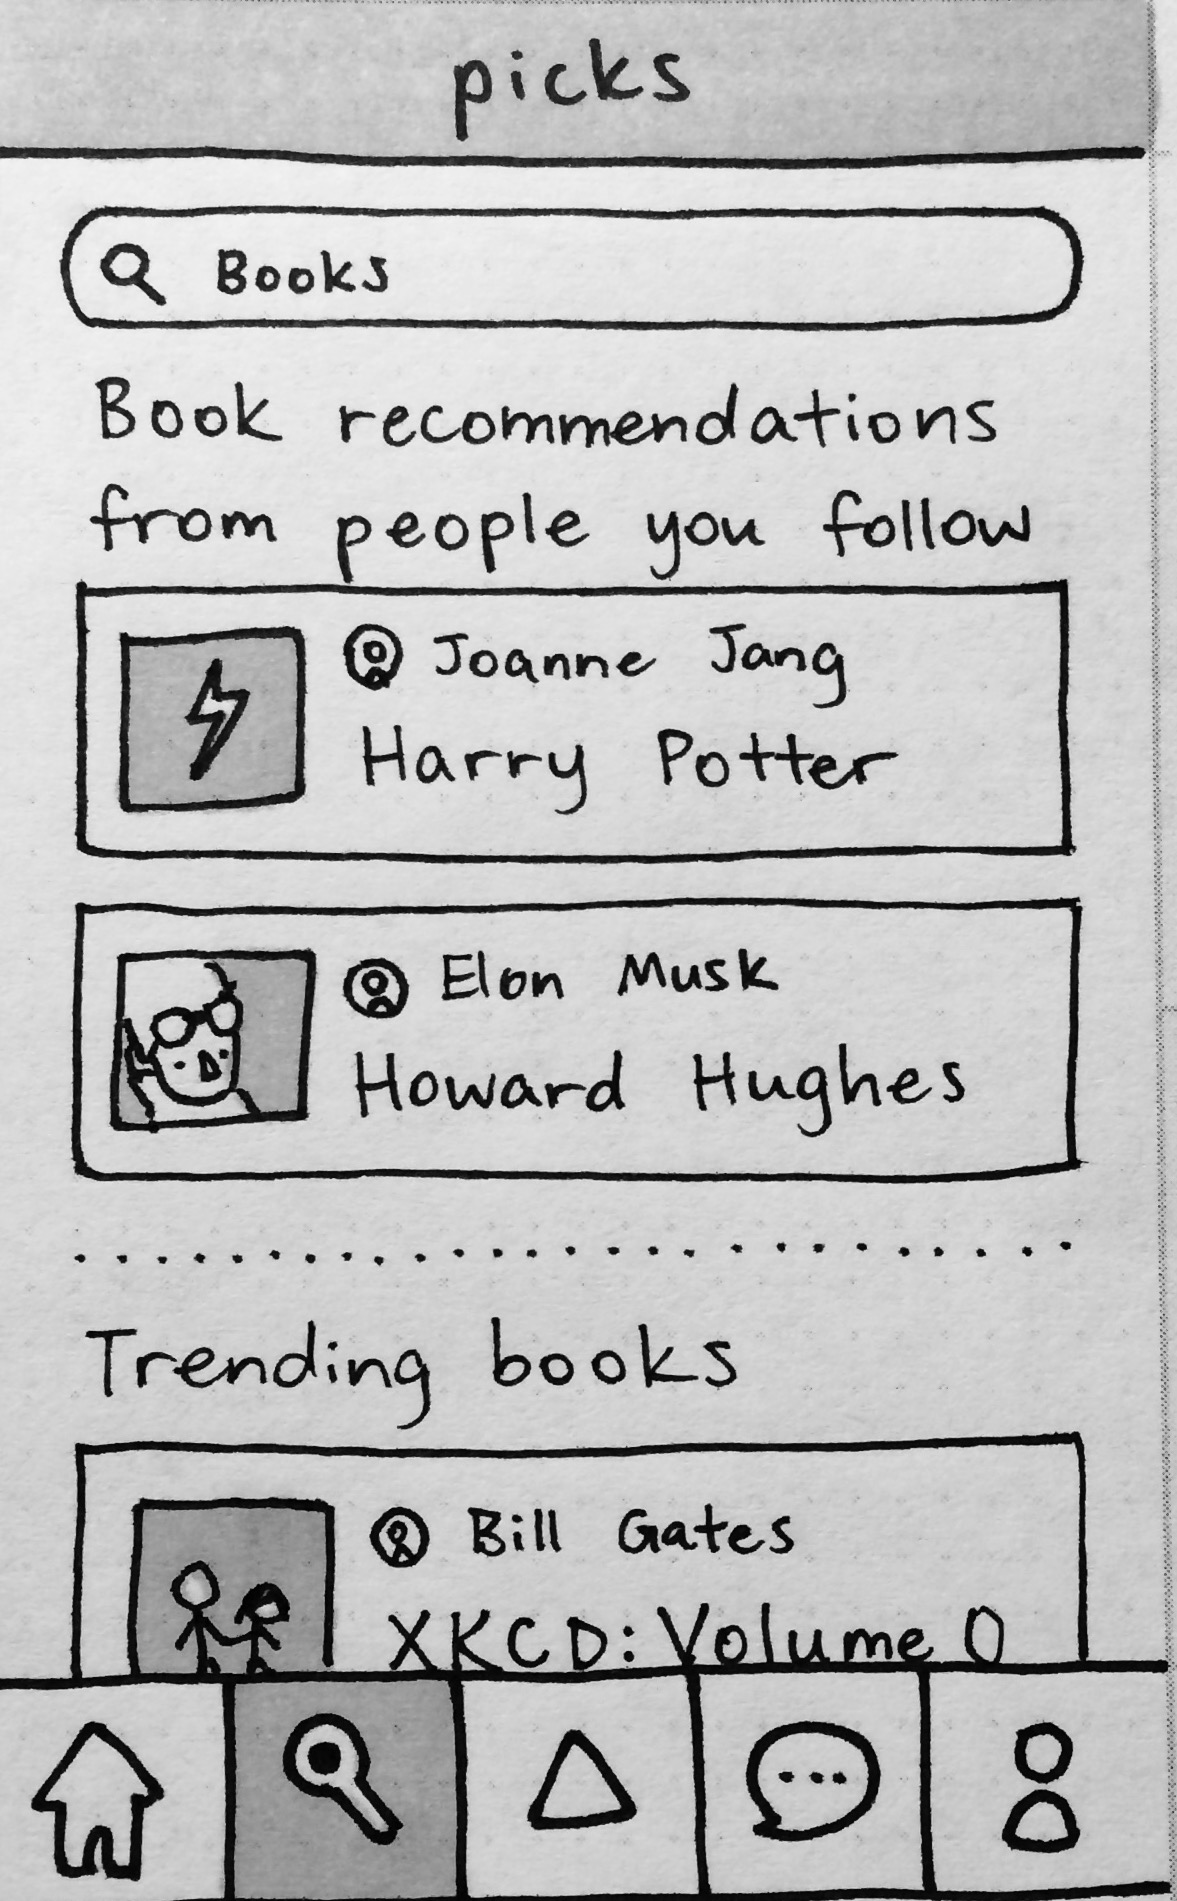 picks
Books
Book recommendations
from people you follow
Joanne Jang
Harry Potter
Elon Musk
Howard Hughes
Trending books
Bill Gates
XKCD: Volume 0